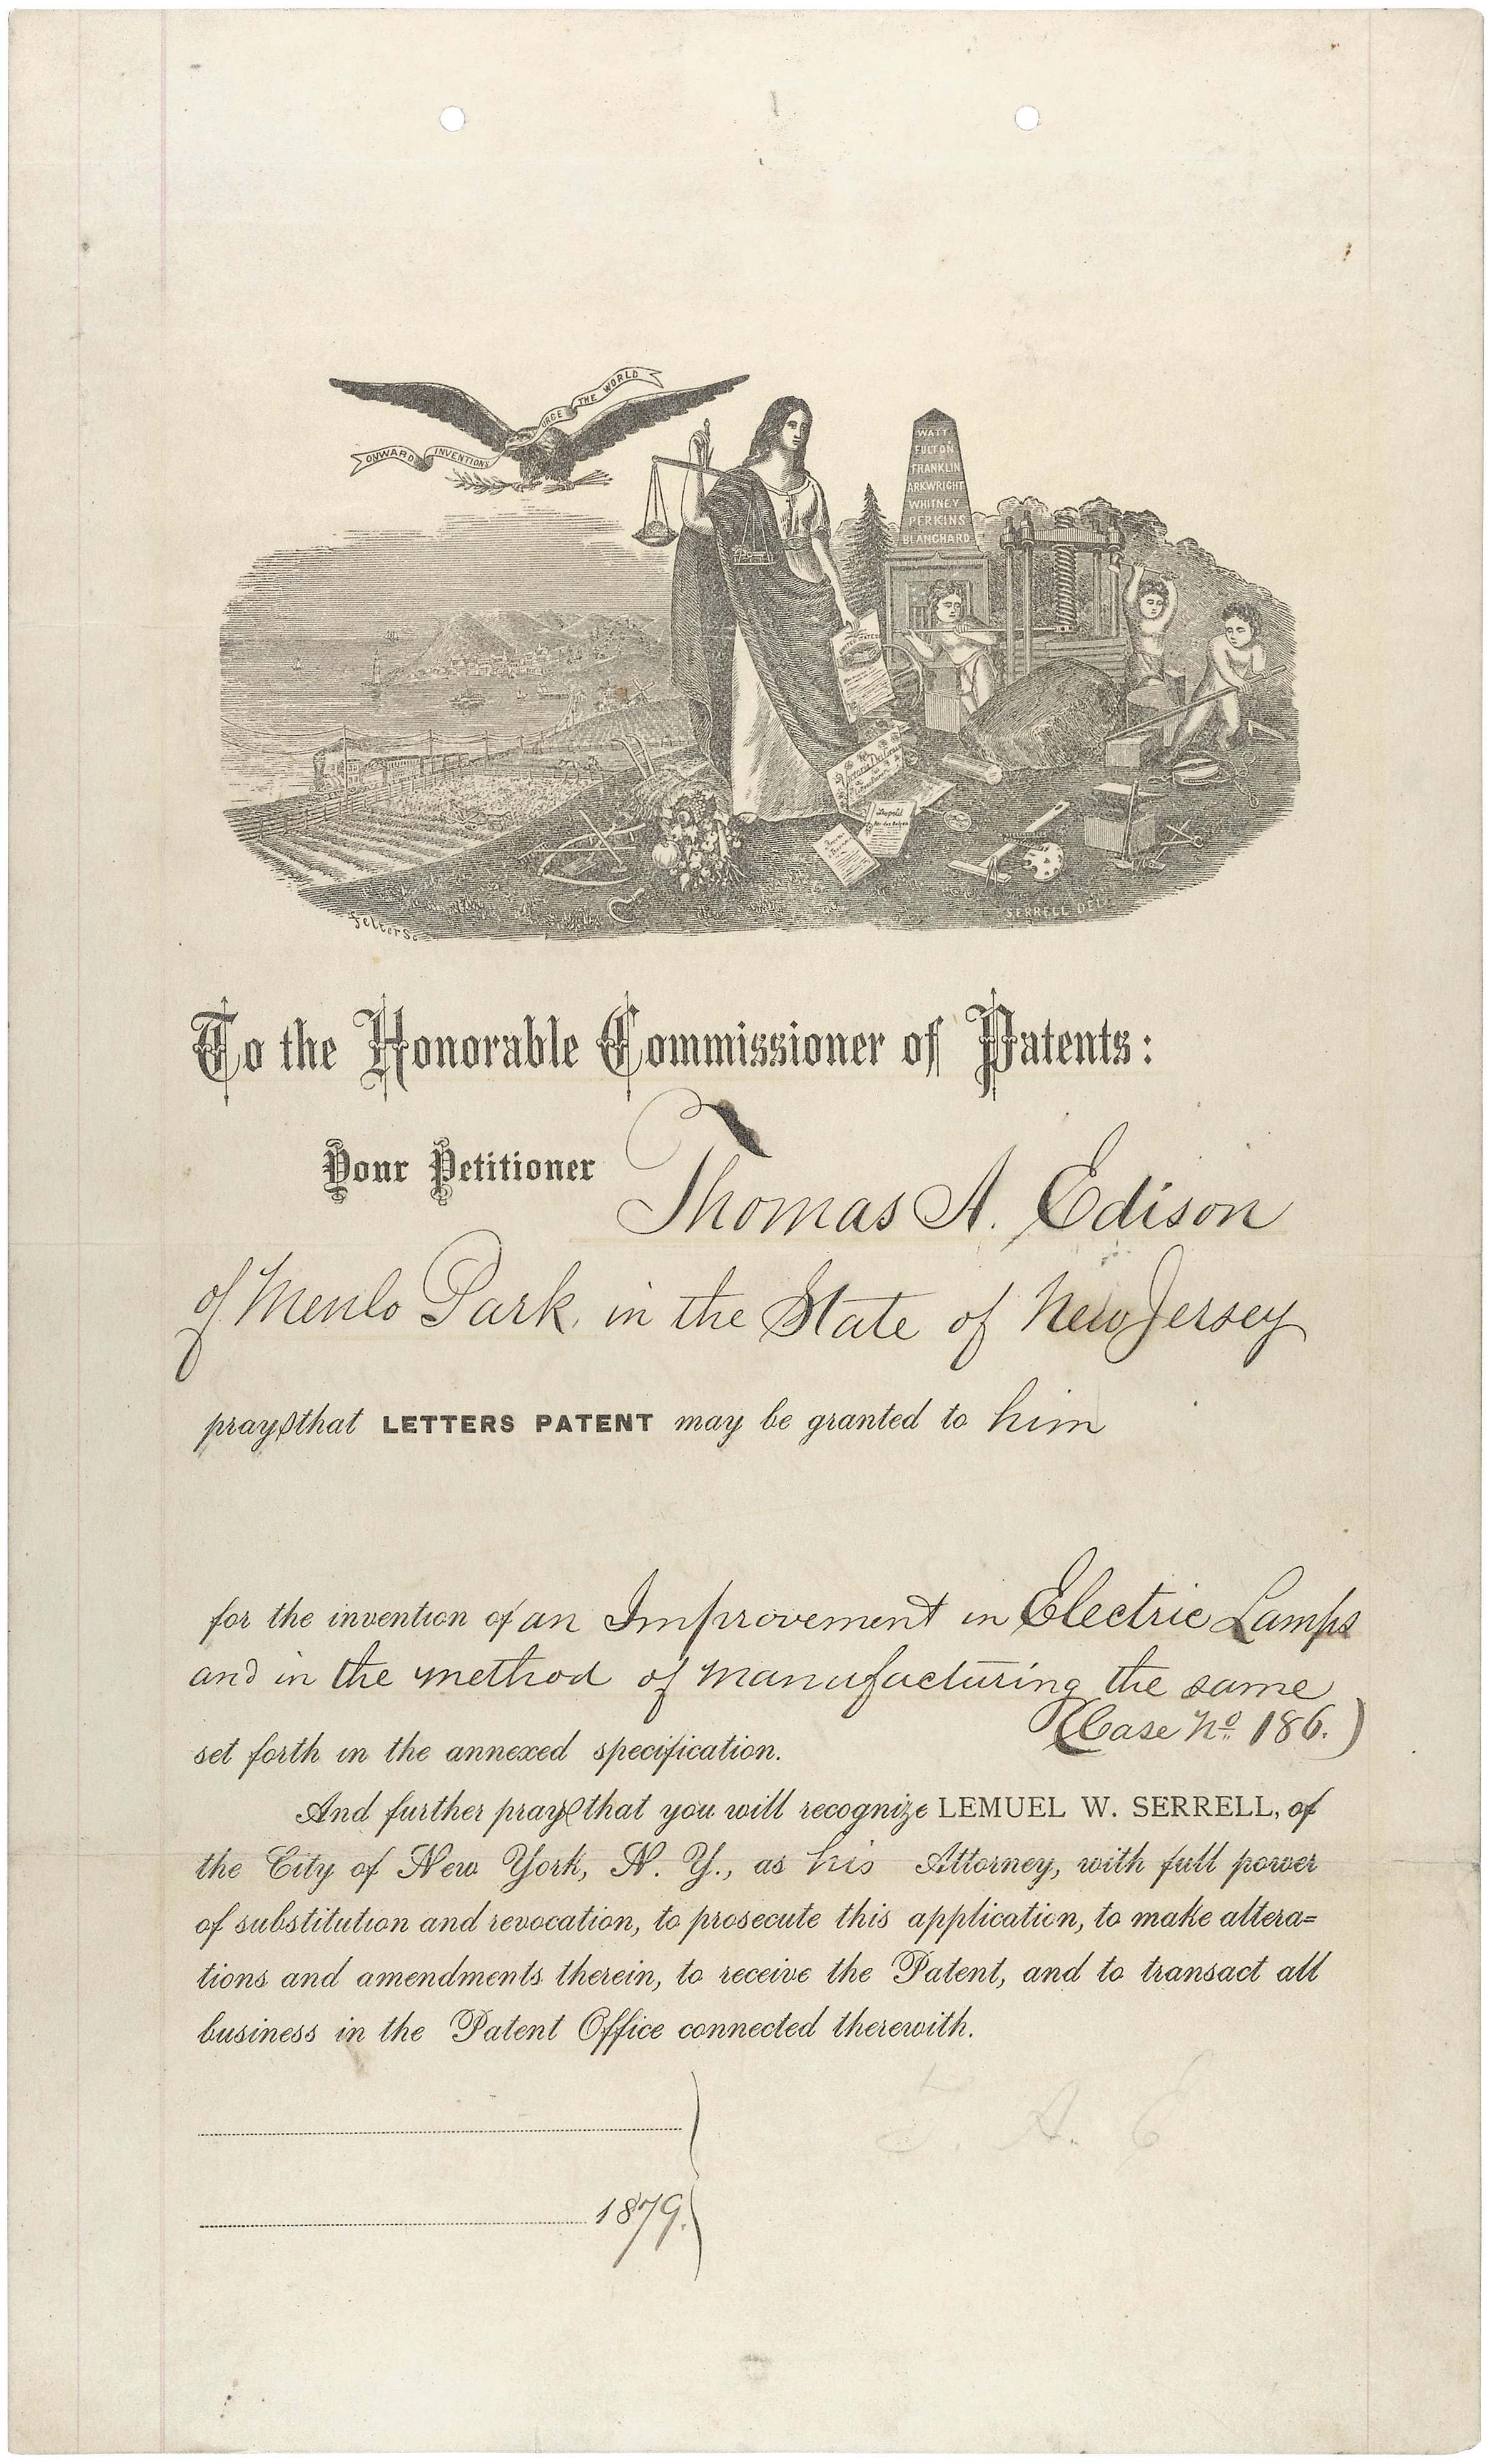 ONWARD INVENTIONS URGE THE WORLD
WATT
FULTON
FRANKLIN
ARKWRIGHT
WHITNEY
PERKINS
BLANCHARD
UNITED STATES
Leopold
SERRELL DEL.
To the Honorable Commissioner of Patents:
Your Petitioner Thomas A. Edison
of Menlo Park, in the State of New Jersey
prays that LETTERS PATENT may be granted to him
for the invention of an Improvement in Electric Lamps
and in the method of manufacturing the same
(Case No 186.)
set forth in the annexed specification.
And further prays that you will recognize LEMUEL W. SERRELL, of
the City of New York, N. Y., as his Attorney, with full power
of substitution and revocation, to prosecute this application, to make altera=
tions and amendments therein, to receive the Patent, and to transact all
business in the Patent Office connected therewith.
T. A. E
1879.